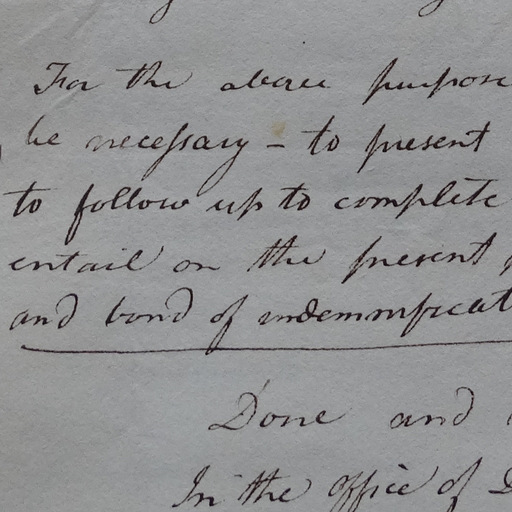 For the above purpose
be necessary - to present
to follow up to complete
entail on the present
and bond of indemnificat
Done and
In the office of